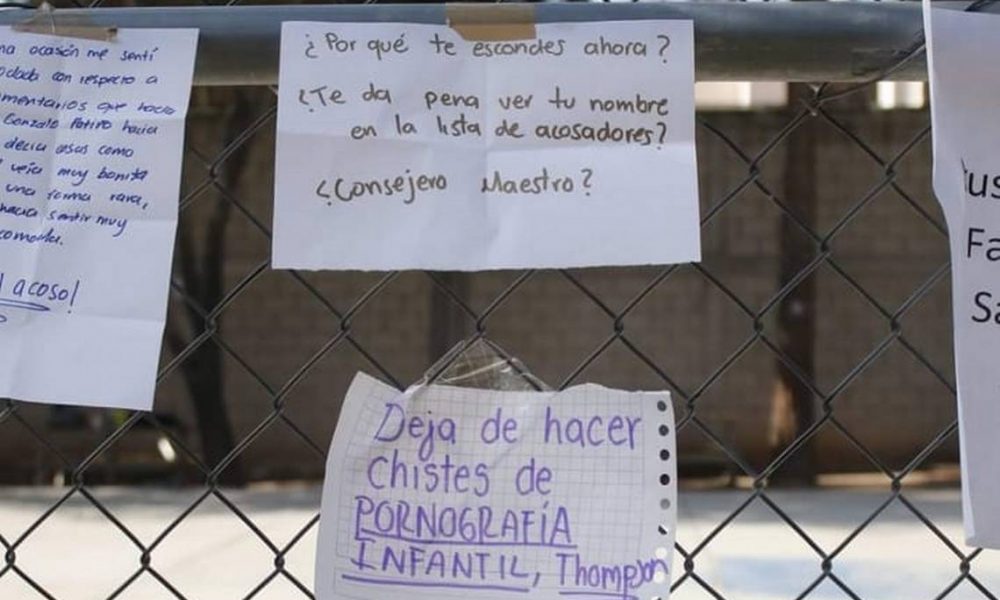 ocasión me sentí
con respecto a
que hacía
Gonzalo Patiño hacia
decía cosas como
veía muy bonita
una forma rara,
sentir muy
acoso!
¿Por qué te escondes ahora?
¿Te da pena ver tu nombre
en la lista de acosadores?
¿Consejero Maestro?
Deja de hacer
chistes de
PORNOGRAFÍA
INFANTIL, Thompson
Fa
Sa